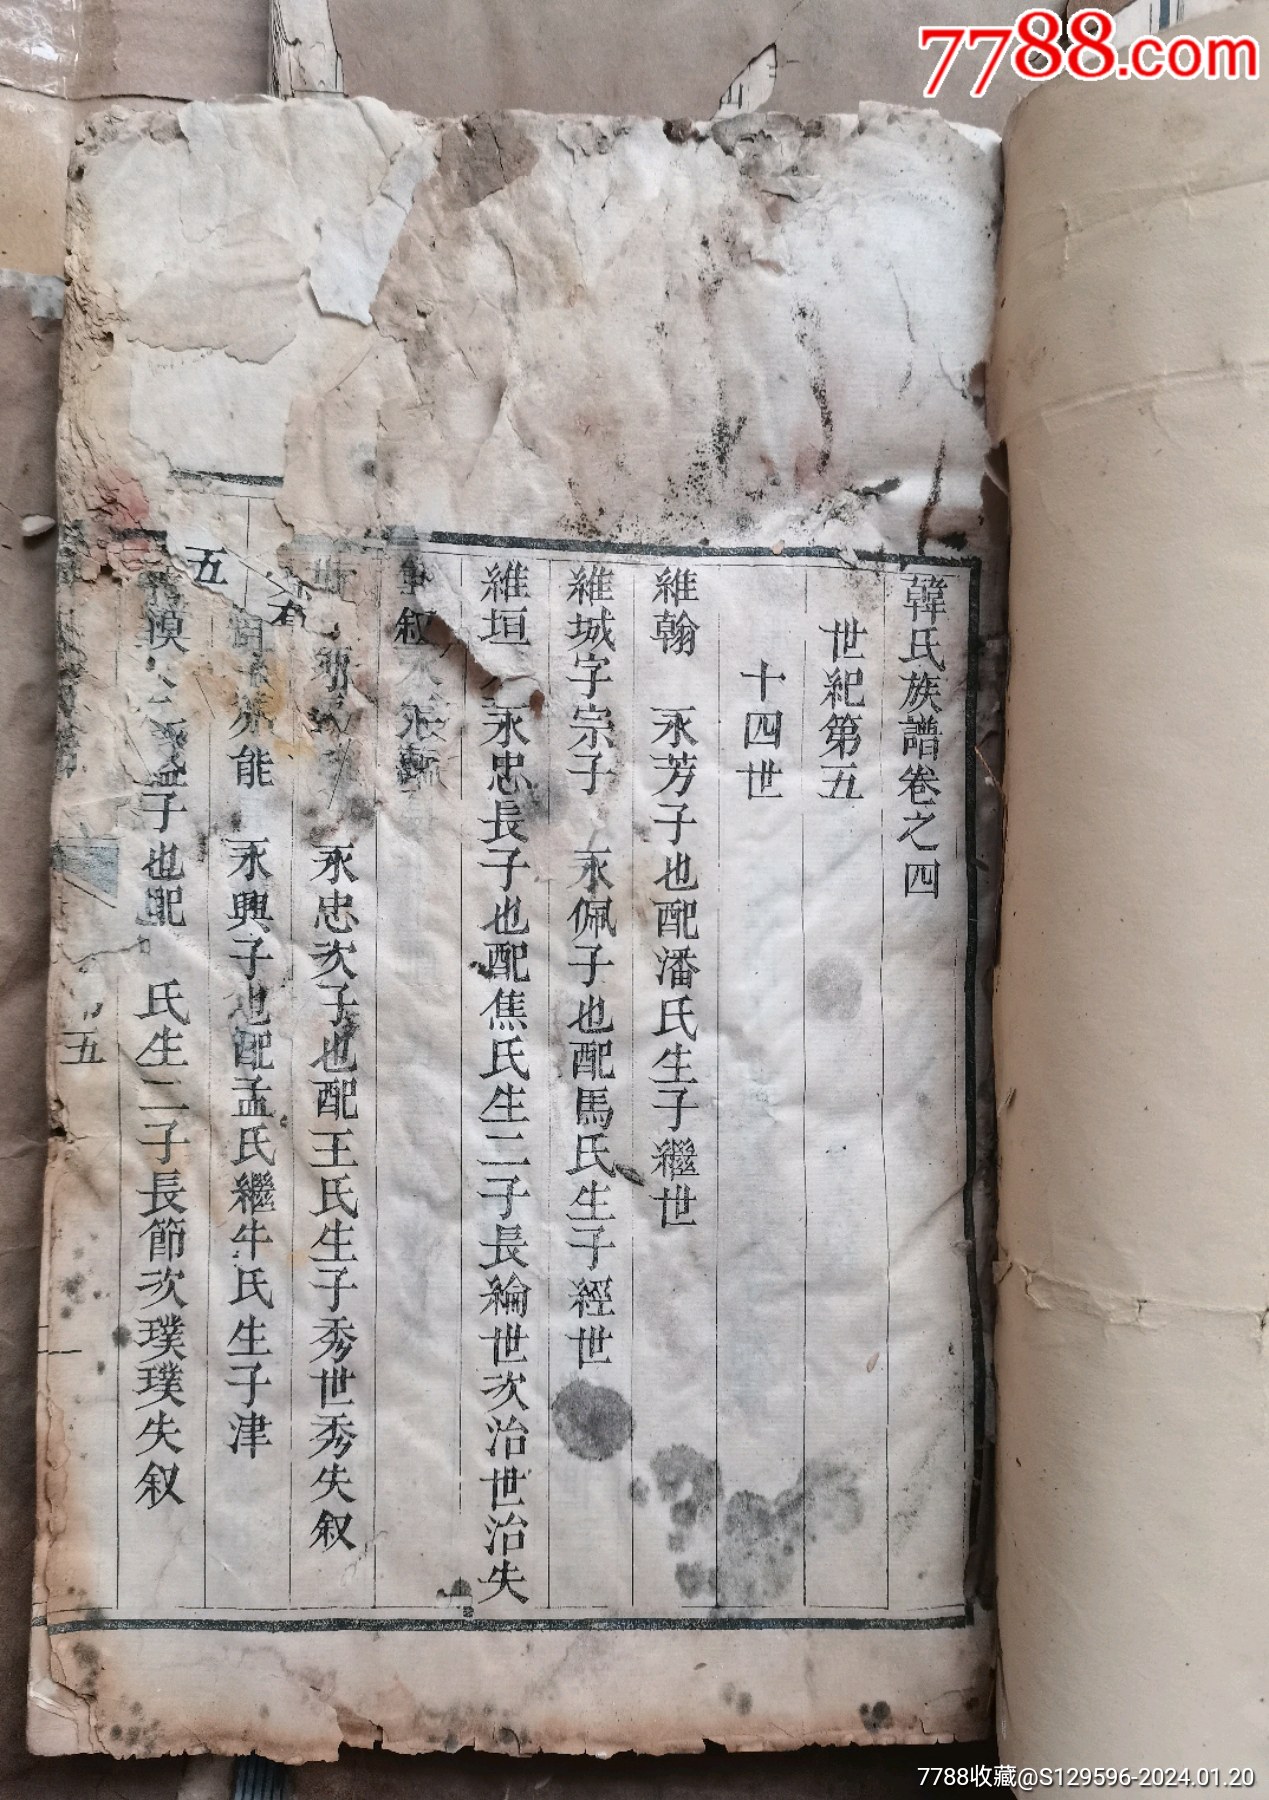 7788.com
韓氏族譜卷之四
世紀第五
十四世
維翰 永芳子也配潘氏生子繼世
維城字宗子 永佩子也配馬氏生子經世
維垣 永忠長子也配焦氏生二子長綸世次治世治失
叙
永忠次子也配王氏生子秀世秀失叙
能 永興子也配孟氏繼牛氏生子津
五
子也配 氏生二子長節次璞璞失叙
五
7788收藏@S129596-2024.01.20